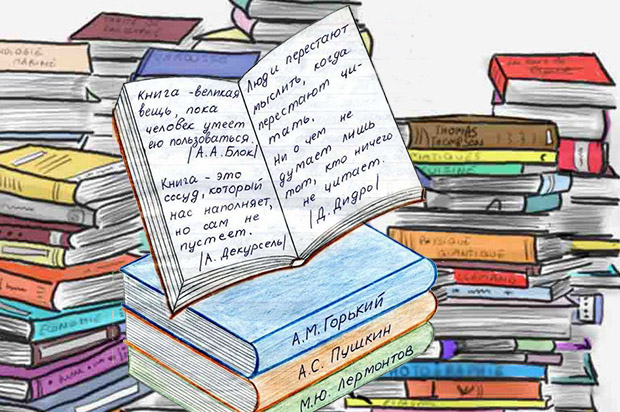 Книга - великая
вещь, пока
человек умеет
ею пользоваться.
|А.А. Блок|
Книга - это
сосуд, который
нас наполняет,
но сам не
пустеет.
|А. Декурсель|
Люди перестают
мыслить, когда
перестают чи-
тать.
Ни о чем не
думает лишь
тот, кто ничего
не читает.
|Д. Дидро|
А.М. Горький
А.С. Пушкин
М.Ю. Лермонтов
THOMAS
THOMPSON
PHYSIQUE
QUANTIQUE
ECONOMIE